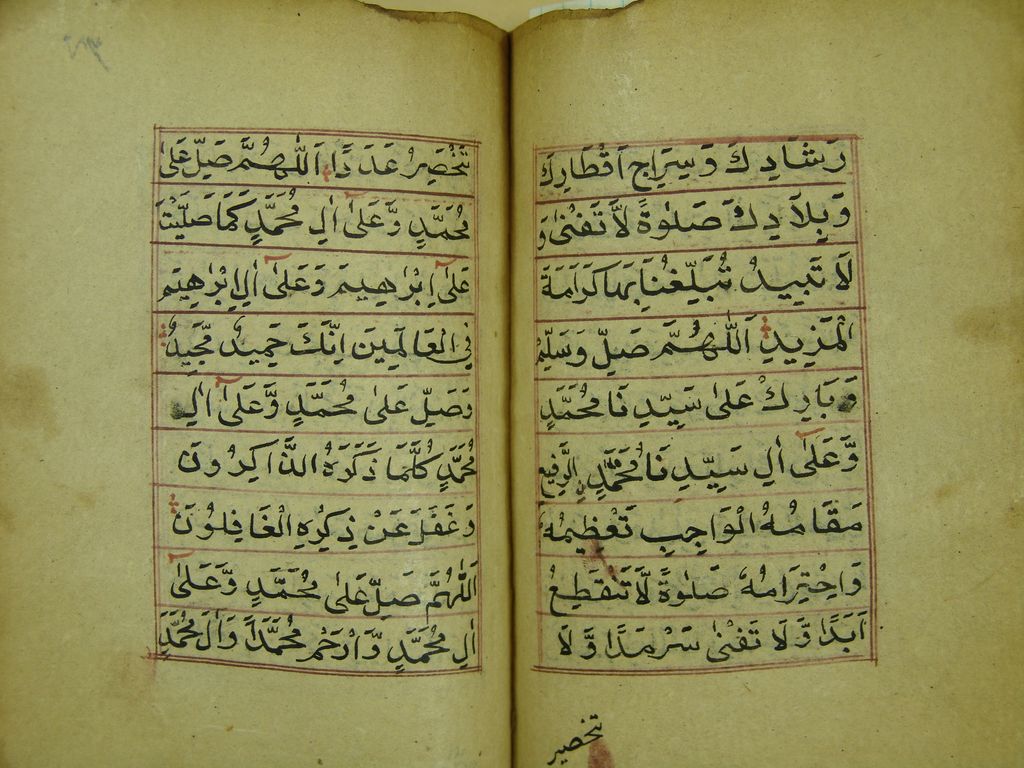 رَشَادِكَ وَسِرَاجِ اَقْطَارِكَ
وَبِلَادِكَ صَلٰوةً لَّا تَفْنٰى وَ
لَا تَبِيدُ تُبَلِّغُنَا بِهَا كَرَامَةَ
الْمَزِيدِ اَللّٰهُمَّ صَلِّ وَسَلِّمْ
وَبَارِكْ عَلٰى سَيِّدِنَا مُحَمَّدٍ
وَّعَلٰى اٰلِ سَيِّدِنَا مُحَمَّدٍ الرَّفِيعِ
مَقَامُهُ الْوَاجِبِ تَعْظِيمُهُ
وَاحْتِرَامُهُ صَلٰوةً لَّا تَنْقَطِعُ
اَبَدًا وَّلَا تَفْنٰى سَرْمَدًا وَّلَا
تنحصر
تَنْحَصِرُ عَدَدًا اَللّٰهُمَّ صَلِّ عَلٰى
مُحَمَّدٍ وَّعَلٰى اٰلِ مُحَمَّدٍ كَمَا صَلَّيْتَ
عَلٰى اِبْرٰهِيمَ وَعَلٰى اٰلِ اِبْرٰهِيمَ
فِي الْعَالَمِينَ اِنَّكَ حَمِيدٌ مَّجِيدٌ
وَصَلِّ عَلٰى مُحَمَّدٍ وَّعَلٰى اٰلِ
مُحَمَّدٍ كُلَّمَا ذَكَرَهُ الذَّاكِرُونَ
وَغَفَلَ عَنْ ذِكْرِهِ الْغَافِلُونَ
اَللّٰهُمَّ صَلِّ عَلٰى مُحَمَّدٍ وَّعَلٰى
اٰلِ مُحَمَّدٍ وَّارْحَمْ مُحَمَّدًا وَاٰلَ مُحَمَّدٍ